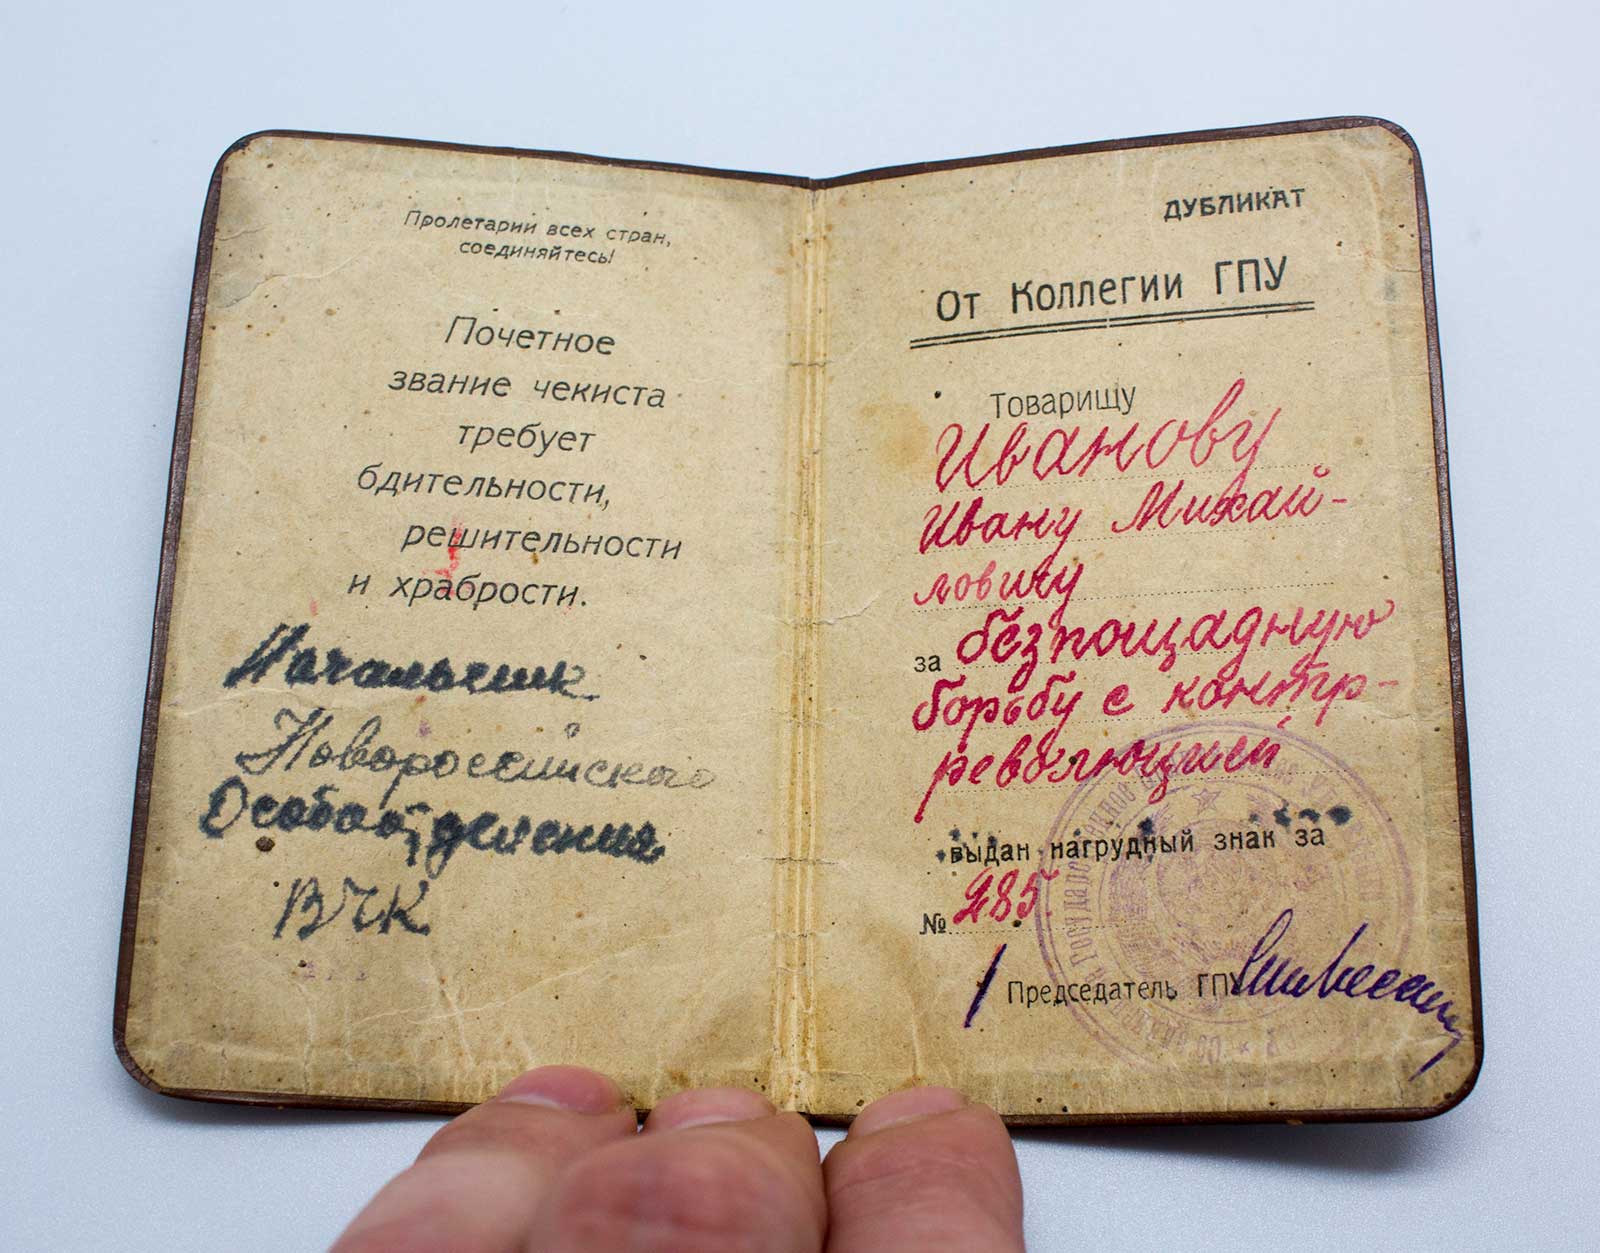 Пролетарии всех стран,
соединяйтесь!
Почетное
звание чекиста
требует
бдительности,
решительности
и храбрости.
Начальник
Новороссийского
Особого отделения
ВЧК
ДУБЛИКАТ
От Коллегии ГПУ
Товарищу
Иванову
Ивану Михай-
ловичу
за безпощадную
борьбу с контр-
революцией
выдан нагрудный знак за
№ 285.
Председатель ГПУ